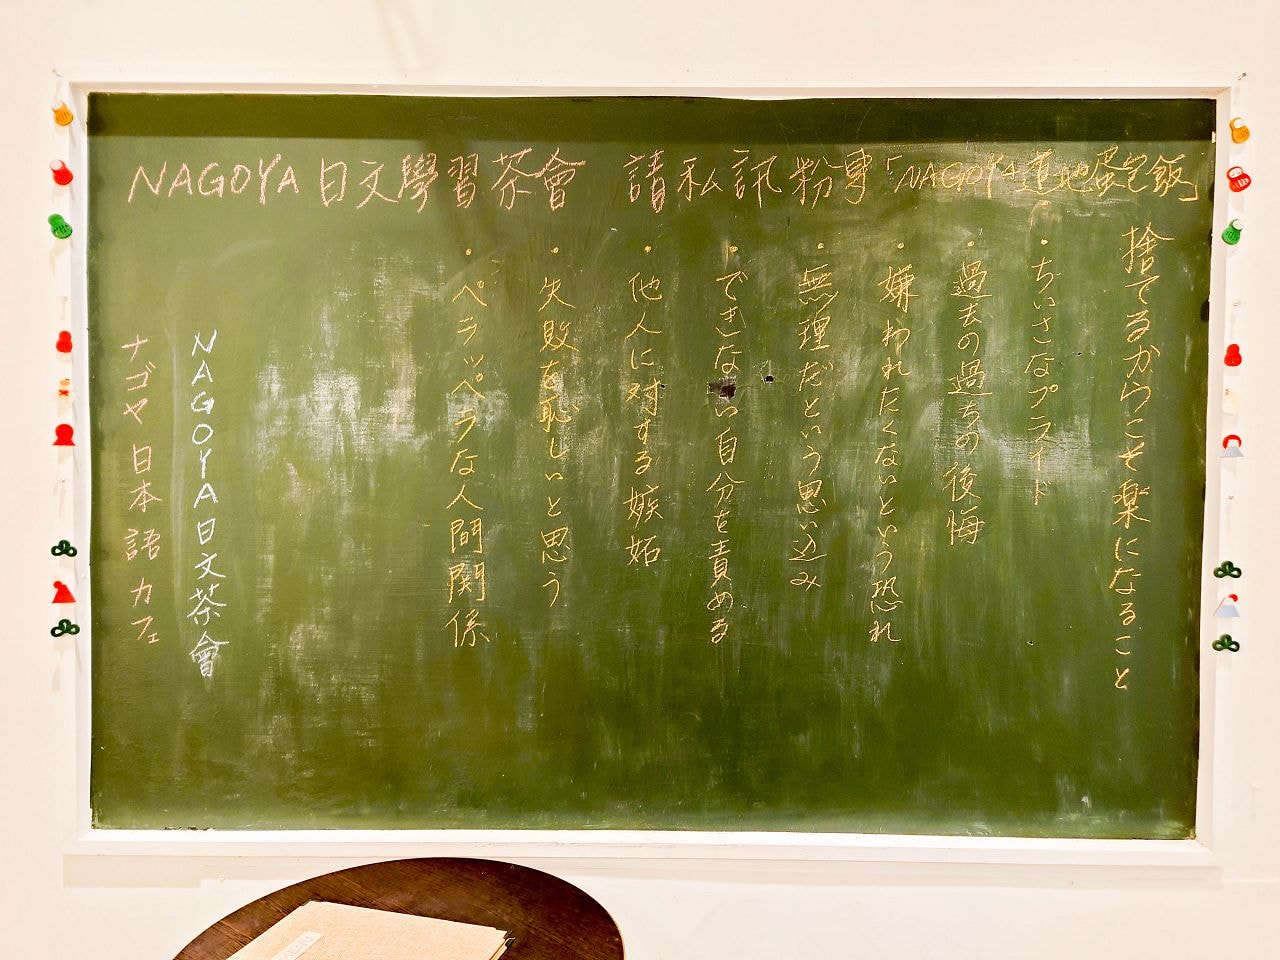 NAGOYA日文學習茶會 請私訊粉專「NAGOYA道地蛋包飯」
捨てるからこそ楽になること
・ちいさなプライド
・過去の過ちの後悔
・嫌われたくないという恐れ
・無理だという思い込み
・できない自分を責める
・他人に対する嫉妬
・失敗を恥しいと思う
・ペラッペラな人間関係
NAGOYA日文茶會
ナゴヤ日本語カフェ